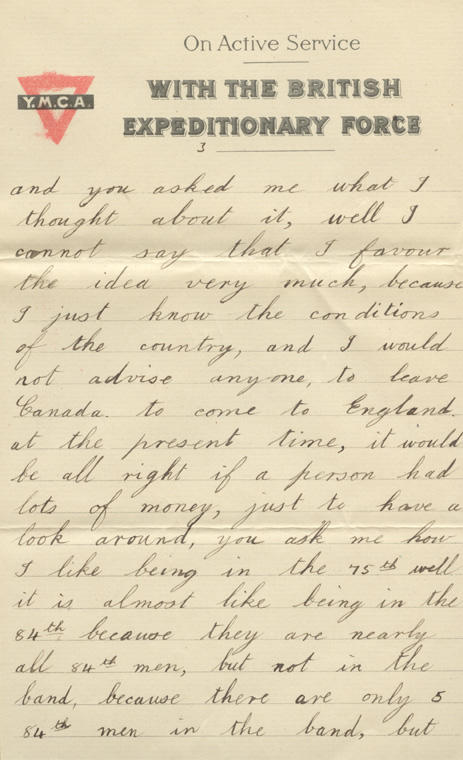 On Active Service
Y.M.C.A.
WITH THE BRITISH
EXPEDITIONARY FORCE
3
and you asked me what I
thought about it, well I
cannot say that I favour
the idea very much, because
I just know the conditions
of the country, and I would
not advise anyone, to leave
Canada. to come to England.
at the present time, it would
be all right if a person had
lots of money, just to have a
look around, you ask me how
I like being in the 75th well
it is almost like being in the
84th because they are nearly
all 84th men, but not in the
band, because there are only 5
84th men in the band, but